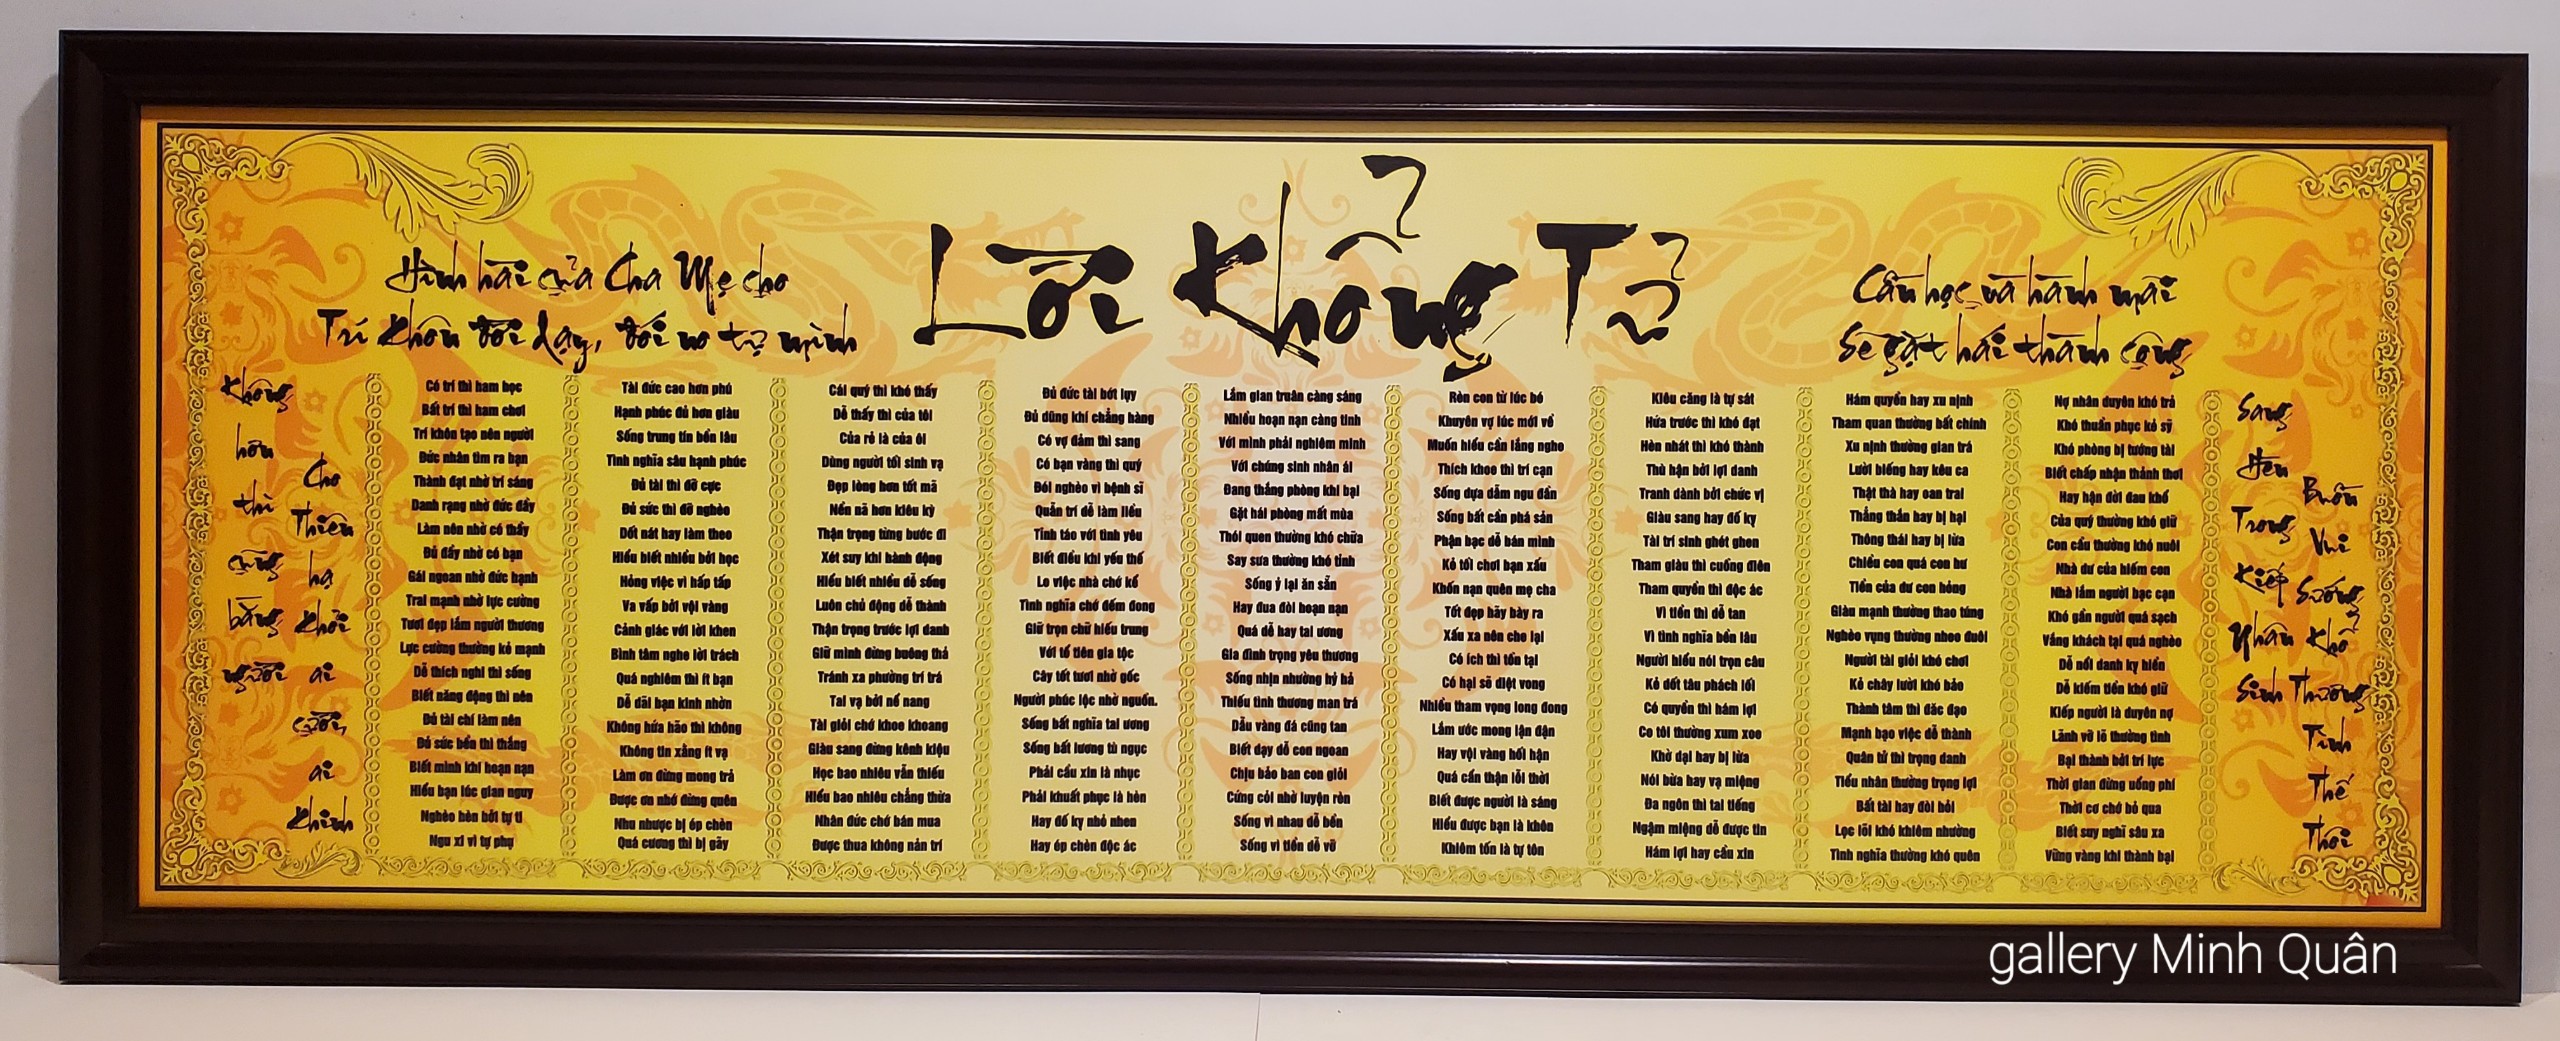 Lời Khổng Tử
Hình hài của Cha Mẹ cho
Trí khôn đời dạy, đói no tự mình
Cần học và hành mãi
Sẽ gặt hái thành công
Không
hơn
thì
cũng
bằng
người
Cho
Thiên
hạ
khỏi
ai
cười,
ai
khinh
Có trí thì ham học
Bất trí thì ham chơi
Trí khôn tạo nên người
Đức nhân tìm ra bạn
Thành đạt nhờ trí sáng
Danh rạng nhờ đức đầy
Làm nên nhờ có thầy
Đủ đầy nhờ có bạn
Gái ngoan nhờ đức hạnh
Trai mạnh nhờ lực cường
Tươi đẹp lắm người thương
Lực cường thường kẻ mạnh
Dễ thích nghi thì sống
Biết năng động thì nên
Đủ tài chí làm nên
Đủ sức bền thì thắng
Biết mình khi hoạn nạn
Hiểu bạn lúc gian nguy
Nghèo hèn bởi tự ti
Ngu xi vì tự phụ
Tài đức cao hơn phú
Hạnh phúc đủ hơn giàu
Sống trung tín bền lâu
Tình nghĩa sâu hạnh phúc
Đủ tài thì đỡ cực
Đủ sức thì đỡ nghèo
Dốt nát hay làm theo
Hiểu biết nhiều bởi học
Hỏng việc vì hấp tấp
Va vấp bởi vội vàng
Cảnh giác với lời khen
Bình tâm nghe lời trách
Quá nghiêm thì ít bạn
Dễ dãi bạn kinh nhờn
Không hứa hão thì không
Không tin xằng ít vạ
Làm ơn đừng mong trả
Được ơn nhớ đừng quên
Nhu nhược bị ép chèn
Quá cương thì bị gãy
Cái quý thì khó thấy
Dễ thấy thì của tồi
Của rẻ là của ôi
Dùng người tồi sinh vạ
Đẹp lòng hơn tốt mã
Nền nã hơn kiêu kỳ
Thận trọng từng bước đi
Xét suy khi hành động
Hiểu biết nhiều dễ sống
Luôn chủ động dễ thành
Thận trọng trước lợi danh
Giữ mình đừng buông thả
Tránh xa phường trí trá
Tai vạ bởi nể nang
Tài giỏi chớ khoe khoang
Giàu sang đừng kênh kiệu
Học bao nhiêu vẫn thiếu
Hiểu bao nhiêu chẳng thừa
Nhân đức chớ bán mua
Được thua không nản trí
Đủ đức tài bớt lụy
Đủ dũng khí chẳng hàng
Có vợ đảm thì sang
Có bạn vàng thì quý
Đói nghèo vì bệnh sĩ
Quẫn trí dễ làm liều
Tỉnh táo với tình yêu
Biết điều khi yếu thế
Lo việc nhà chớ kể
Tình nghĩa chớ đếm đong
Giữ trọn chữ hiếu trung
Với tổ tiên gia tộc
Cây tốt tươi nhờ gốc
Người phúc lộc nhờ nguồn.
Sống bất nghĩa tai ương
Sống bất lương tù ngục
Phải cầu xin là nhục
Phải khuất phục là hèn
Hay đố kỵ nhỏ nhen
Hay ép chèn độc ác
Lắm gian truân càng sáng
Nhiều hoạn nạn càng tinh
Với mình phải nghiêm minh
Với chúng sinh nhân ái
Đang thắng phòng khi bại
Gặt hái phòng mất mùa
Thói quen thường khó chữa
Say sưa thường khó tỉnh
Sống ỷ lại ăn sẵn
Hay đua đòi hoạn nạn
Quá dễ hay tai ương
Gia đình trọng yêu thương
Sống nhịn nhường hỷ hả
Thiếu tình thương man trá
Dẫu vàng đá cũng tan
Biết dạy dỗ con ngoan
Chịu bảo ban con giỏi
Cứng cỏi nhờ luyện rèn
Sống vì nhau dễ bền
Sống vì tiền dễ vỡ
Rèn con từ lúc bé
Khuyên vợ lúc mới về
Muốn hiểu cần lắng nghe
Thích khoe thì trí cạn
Sống dựa dẫm ngu đần
Sống bất cần phá sản
Phận bạc dễ bán mình
Kẻ tồi chơi bạn xấu
Khốn nạn quên mẹ cha
Tốt đẹp hãy bày ra
Xấu xa nên che lại
Có ích thì tồn tại
Có hại sẽ diệt vong
Nhiều tham vọng long đong
Lắm ước mong lận đận
Hay vội vàng hối hận
Quá cẩn thận lỗi thời
Biết được người là sáng
Hiểu được bạn là khôn
Khiêm tốn là tự tôn
Kiêu căng là tự sát
Hứa trước thì khó đạt
Hèn nhát thì khó thành
Thù hận bởi lợi danh
Tranh dành bởi chức vị
Giàu sang hay đố kỵ
Tài trí sinh ghét ghen
Tham giàu thì cuồng điên
Tham quyền thì độc ác
Vì tiền thì dễ tan
Vì tình nghĩa bền lâu
Người hiểu nói trọn câu
Kẻ dốt tâu phách lối
Có quyền thì hám lợi
Co tôi thường xum xoe
Khờ dại hay bị lừa
Nói bừa hay vạ miệng
Đa ngôn thì tai tiếng
Ngậm miệng dễ được tin
Hám lợi hay cầu xin
Hám quyền hay xu nịnh
Tham quan thường bất chính
Xu nịnh thường gian trá
Lười biếng hay kêu ca
Thật thà hay oan trái
Thẳng thắn hay bị hại
Thông thái hay bị lừa
Chiều con quá con hư
Tiền của dư con hỏng
Giàu mạnh thường thao túng
Nghèo vụng thường nheo đuôi
Người tài giỏi khó chơi
Kẻ chây lười khó bảo
Thành tâm thì đắc đạo
Mạnh bạo việc dễ thành
Quân tử thì trọng danh
Tiểu nhân thường trọng lợi
Bất tài hay đòi hỏi
Lọc lõi khó khiêm nhường
Tình nghĩa thường khó quên
Nợ nhân duyên khó trả
Khó thuần phục kẻ sỹ
Khó phòng bị tướng tài
Biết chấp nhận thảnh thơi
Hay hận đời đau khổ
Của quý thường khó giữ
Con cầu thường khó nuôi
Nhà dư của hiếm con
Nhà lắm người bạc cạn
Khó gần người quá sạch
Vắng khách tại quá nghèo
Dễ nổi danh kỵ hiền
Dễ kiếm tiền khó giữ
Kiếp người là duyên nợ
Lãnh vỡ lỡ thường tình
Bại thành bởi trí lực
Thời gian đừng uổng phí
Thời cơ chớ bỏ qua
Biết suy nghĩ sâu xa
Vững vàng khi thành bại
Sang
Hèn
Trong
Kiếp
Nhân
Sinh
Buồn
Vui
Sướng
Khổ
Thường
Tình
Thế
Thôi
gallery Minh Quân